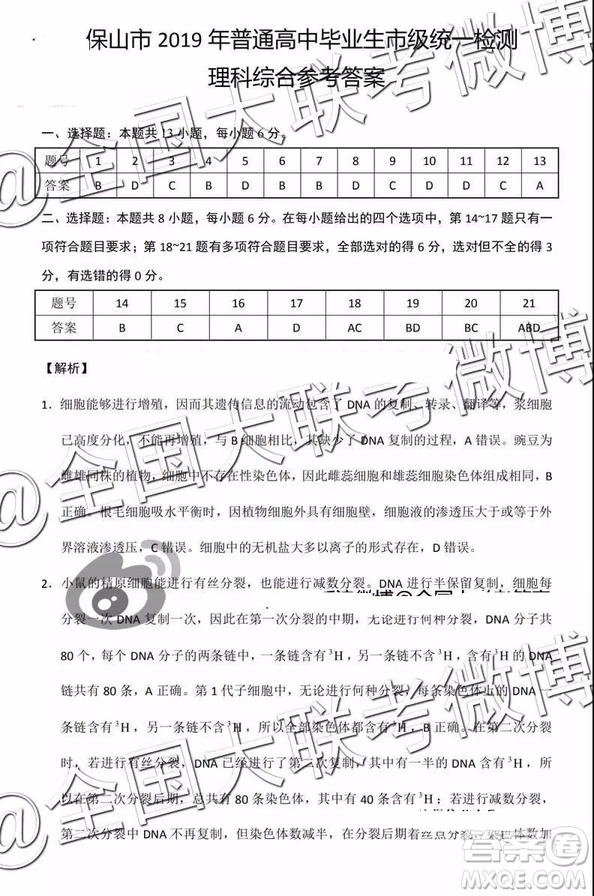 保山市 2019 年普通高中毕业生市级统一检测
理科综合参考答案
一、选择题：本题共 13 小题，每小题 6 分。
题号 1 2 3 4 5 6 7 8 9 10 11 12 13
答案 B D C A C B D B D D C A
二、选择题：本题共 8 小题，每小题 6 分。在每小题给出的四个选项中，第 14~17 题只有一
项符合题目要求；第 18~21 题有多项符合题目要求，全部选对的得 6 分，选对但不全的得 3
分，有选错的得 0 分。
题号 14 15 16 17 18 19 20 21
答案 B C A AC BD BC ABD
【解析】
1. 细胞能够进行增殖，因而其遗传信息的流动包含了 DNA 的复制、转录、翻译等，浆细胞
已高度分化，不能再分裂，与 B 细胞相比，其缺少了 DNA 复制的过程，A 错误。豌豆为
雌雄同株的植物，细胞中不存在性染色体，因此雌蕊细胞和雄蕊细胞染色体组成相同，B
正确。根毛细胞吸水平衡时，因植物细胞外具有细胞壁，细胞液的渗透压大于或等于外
界溶液渗透压，C 错误。细胞中的无机盐大多以离子的形式存在，D 错误。
2. 小鼠的精原细胞能进行有丝分裂，也能进行减数分裂。DNA 进行半保留复制，细胞每
分裂一次 DNA 复制一次，因此，在第一次分裂的中期，无论进行何种分裂，DNA 共
80 个，每个 DNA 分子的两条链中，一条链含有 ³H，另一条链不含 ³H，所以含有 ³H 的链
共有 80 条，A 正确。第 1 代子细胞中，无论进行何种分裂，每条染色体上的 DNA 一条链
含有 ³H，另一条链不含 ³H，所以全部染色体都有 ³H，B 正确。在第二次分裂
时，若进行有丝分裂，DNA 已经进行了第二次复制，其中有一半的 DNA 含 ³H，
所以在第二次分裂后期，总共有 80 条染色体，其中含有 40 条含有 ³H；若进行减数分裂，
第二次分裂 DNA 不再复制，但染色体数减半，在分裂后期着丝点分裂，染色体数加
@全国大联考微博
答案圈